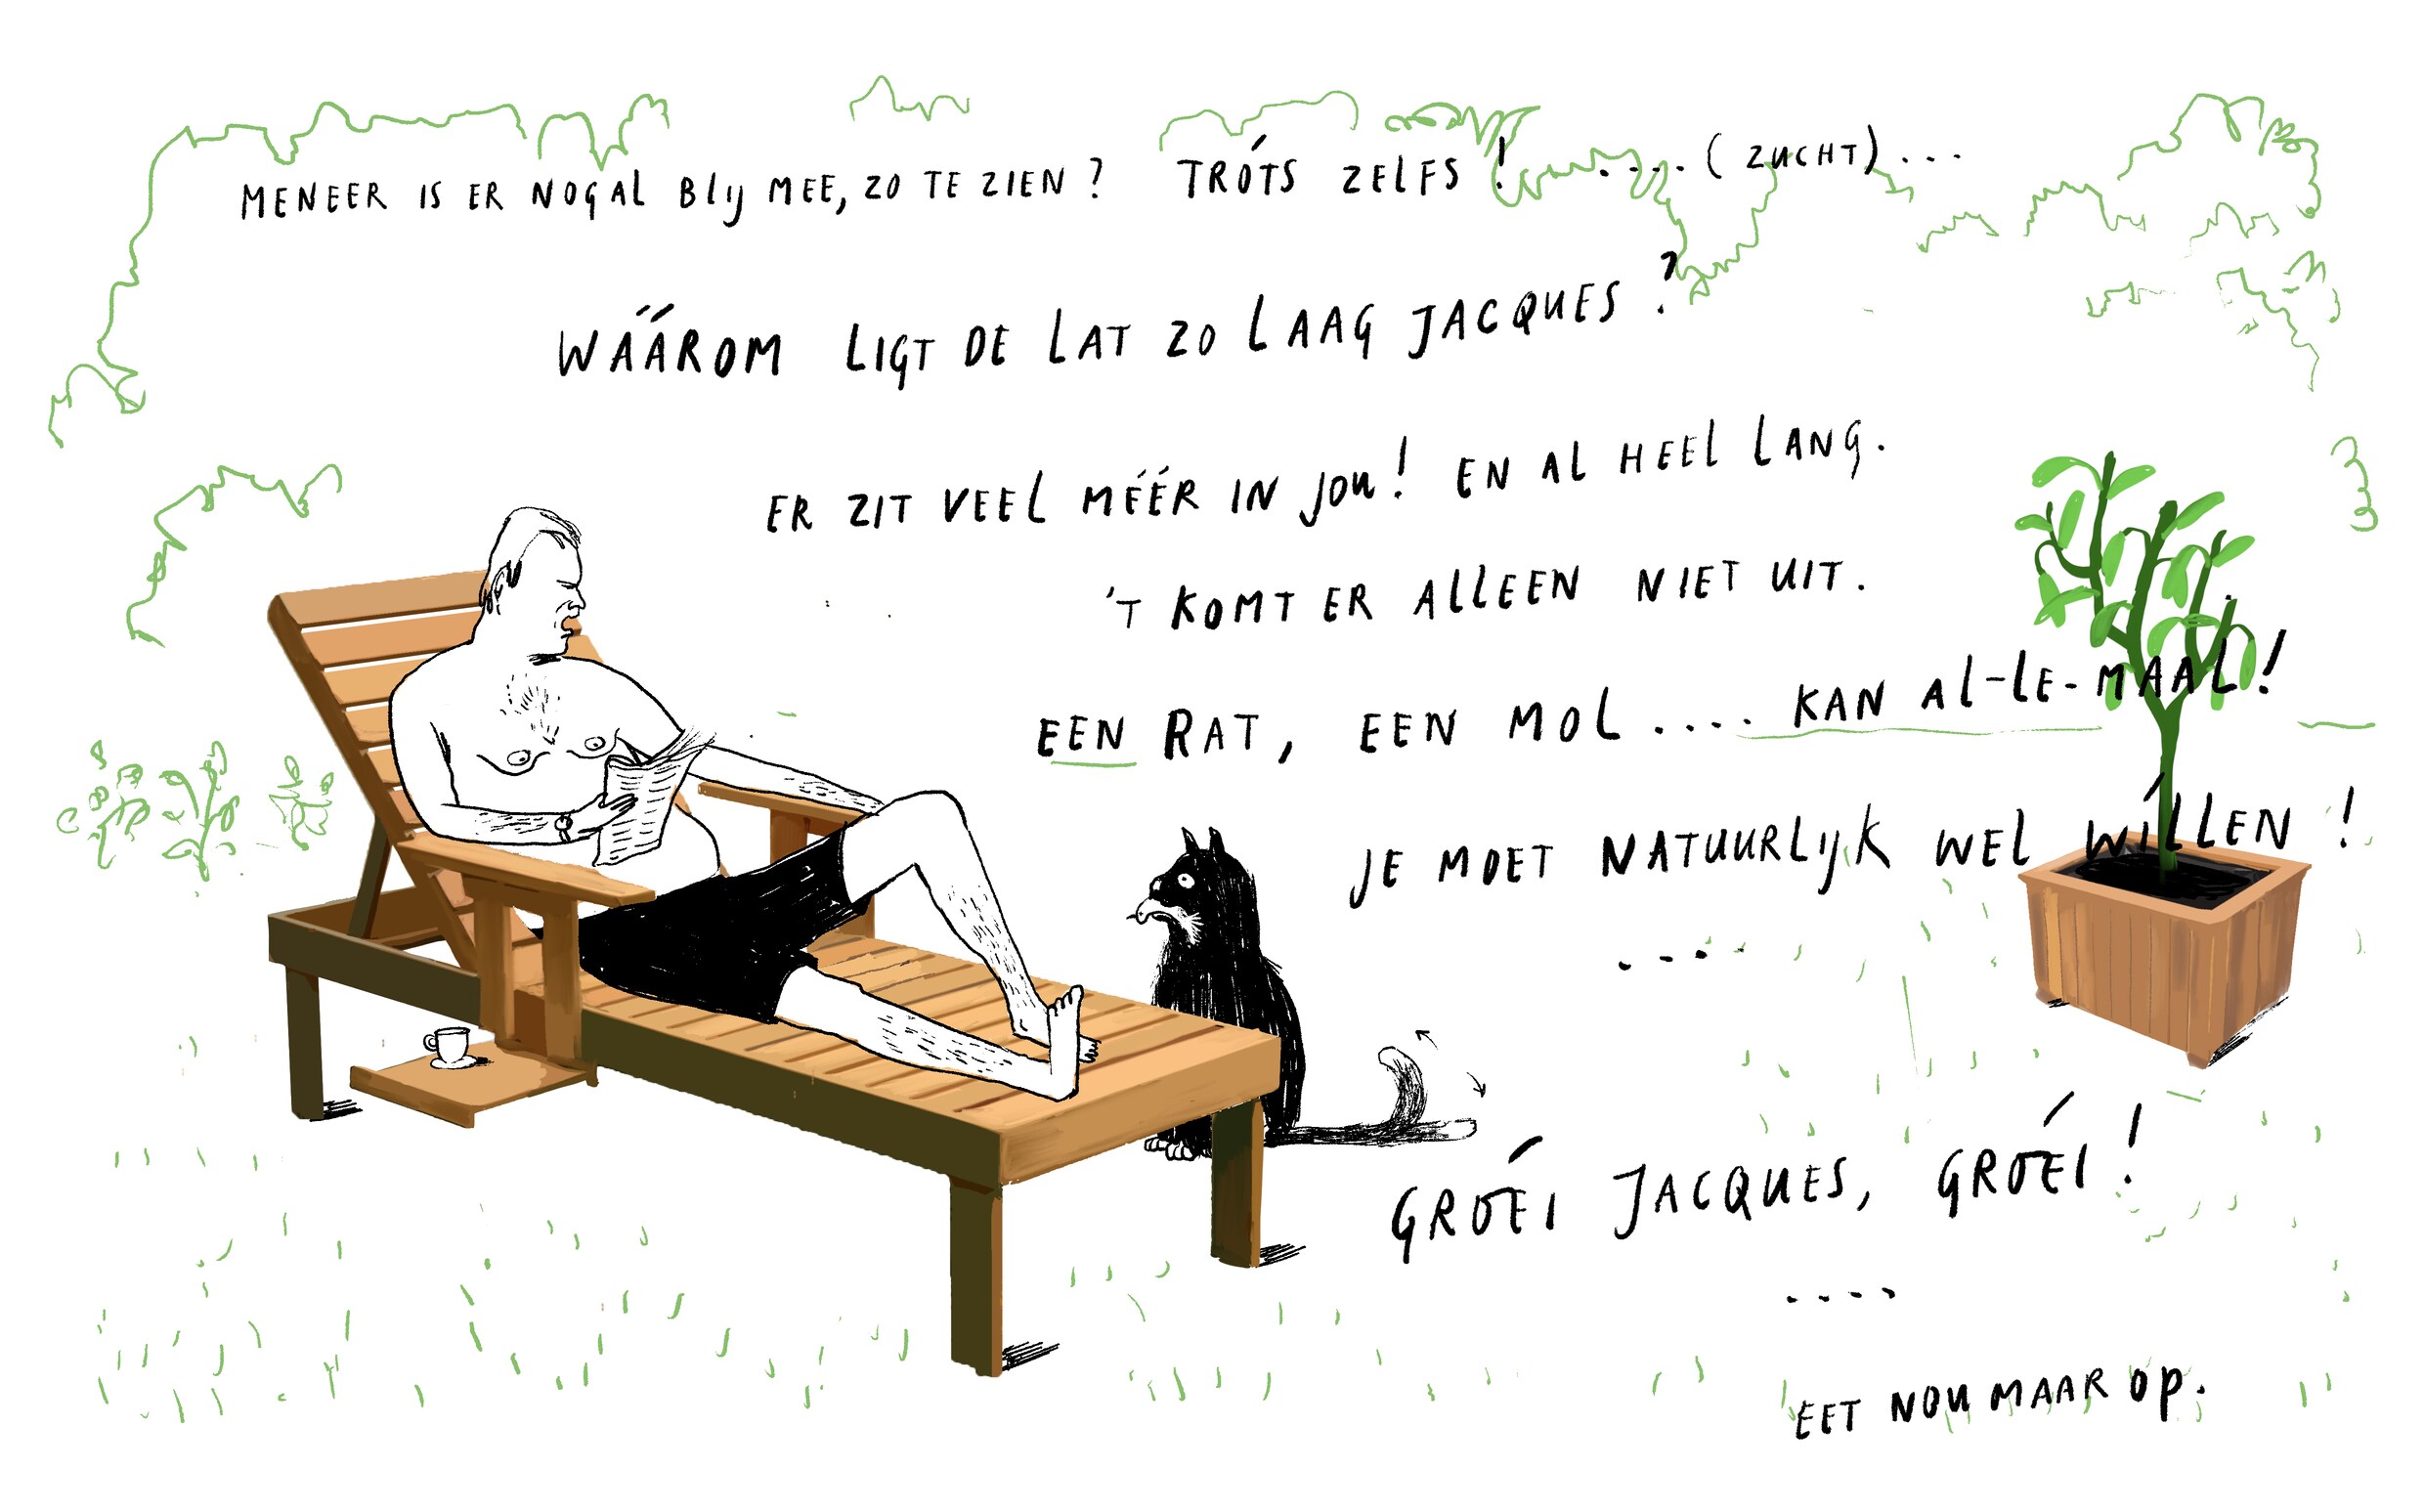 MENEER IS ER NOGAL BLIJ MEE, ZO TE ZIEN? TRÓTS ZELFS! ....(ZUCHT)...
WÁÁROM LIGT DE LAT ZO LAAG JACQUES?
ER ZIT VEEL MÉÉR IN JOU! EN AL HEEL LANG.
'T KOMT ER ALLEEN NIET UIT.
EEN RAT, EEN MOL .... KAN AL-LE-MAAL!
JE MOET NATUURLIJK WEL WÍLLEN!
....
GROÉI JACQUES, GROÉI!
....
EET NOU MAAR OP.